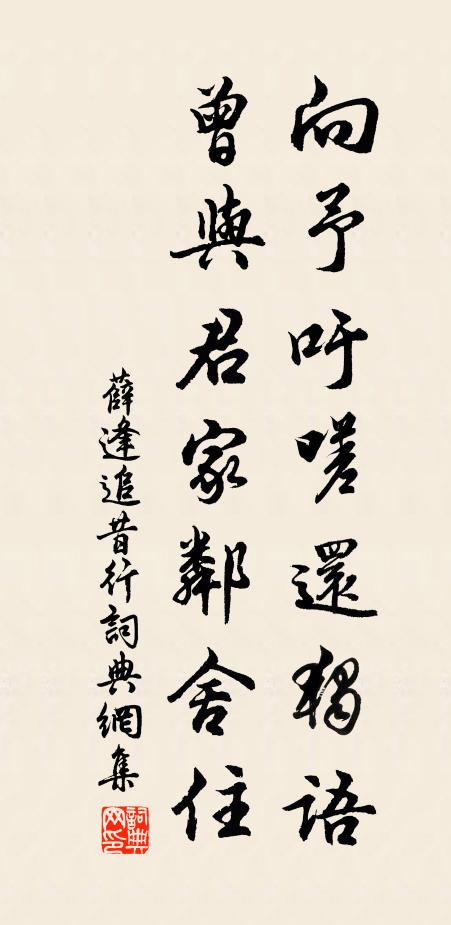 向予吁嗟還獨語
曾與君家鄰舍住
薛逢追昔行詞典網集
詞典网印